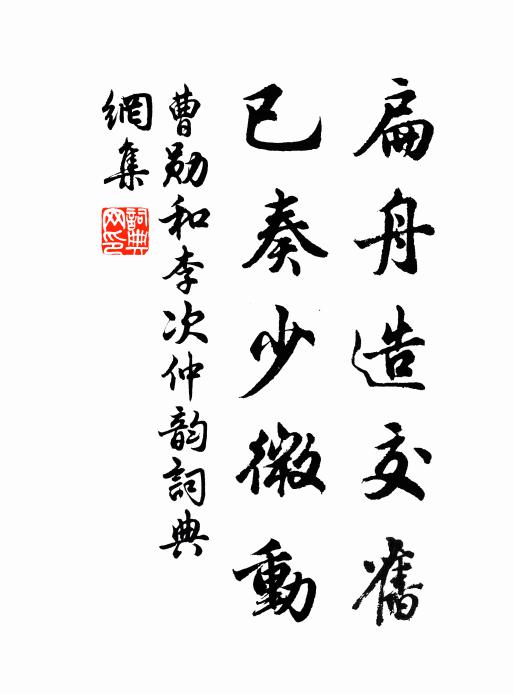 扁舟造交舊
已奏少微動
曹勛和李次仲韵詞典
網集
詞典網印